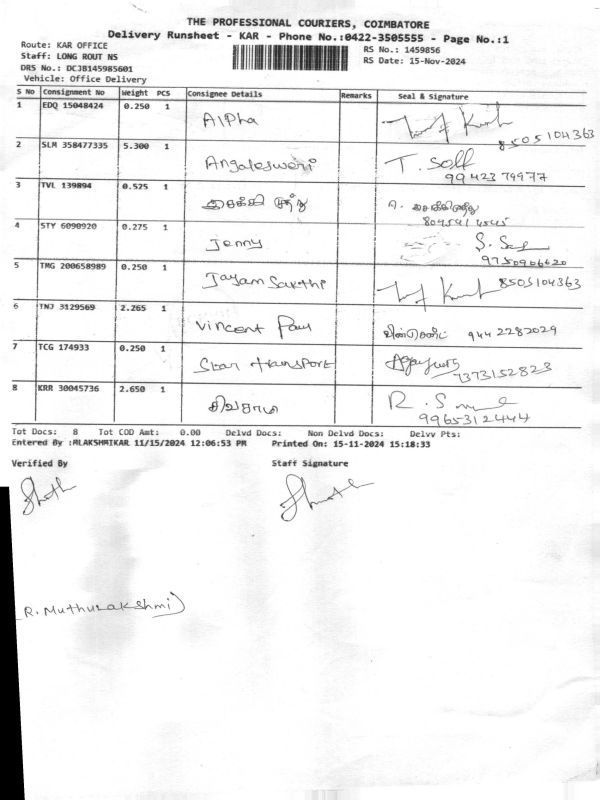 THE PROFESSIONAL COURIERS, COIMBATORE
Delivery Runsheet - KAR - Phone No.:0422-3505555 - Page No.:1
Route: KAR OFFICE RS No.: 1459856
Staff: LONG ROUT NS RS Date: 15-Nov-2024
DRS No.: DCJB145985601
Vehicle: Office Delivery
S No Consignment No Weight PCS Consignee Details Remarks Seal & Signature
1 EDQ 15048424 0.250 1 Alpha 8505104363
2 SLM 358477335 5.300 1 Angaleswari T. Self
9942379977
3 TVL 139894 0.525 1
4 STY 6090920 0.275 1 Jenny
9750906620
5 TMG 200658989 0.250 1 Jayam Sakthi 8505104363
6 TNJ 3129569 2.265 1 Vincent Paul வின்சென்ட் 9442282029
7 TCG 174933 0.250 1 Star transport
7373152823
8 KRR 30045736 2.650 1 சிவகாமி
9965312444
Tot Docs: 8 Tot COD Amt: 0.00 Delvd Docs: Non Delvd Docs: Delvv Pts:
Entered By :MLAKSHMIKAR 11/15/2024 12:06:53 PM Printed On: 15-11-2024 15:18:33
Verified By Staff Signature
(R. Muthulakshmi)